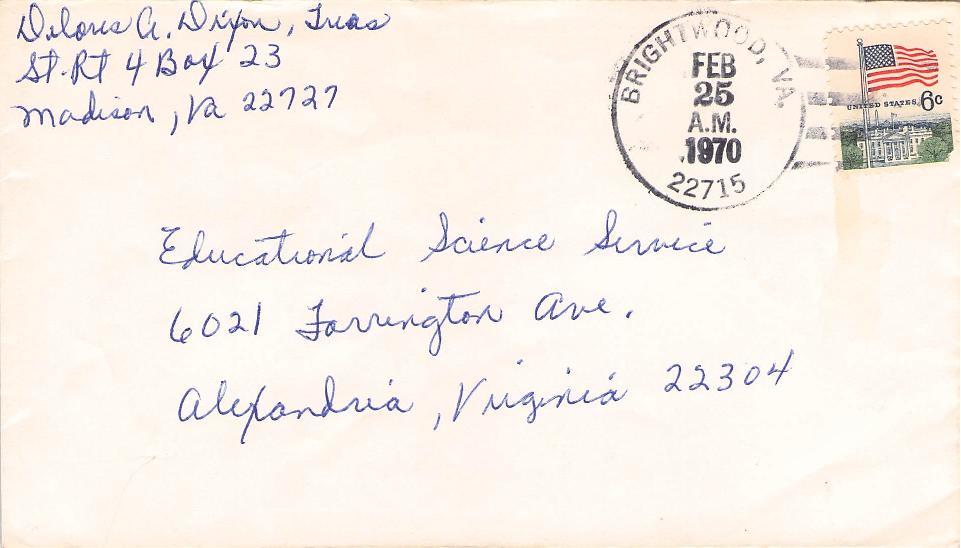 Delores A. Dixon, Treas
St. Rt 4 Box 23
Madison, Va 22727
BRIGHTWOOD, VA.
FEB
25
A.M.
1970
22715
UNITED STATES 6c
Educational Science Service
6021 Farrington Ave.
Alexandria, Virginia 22304